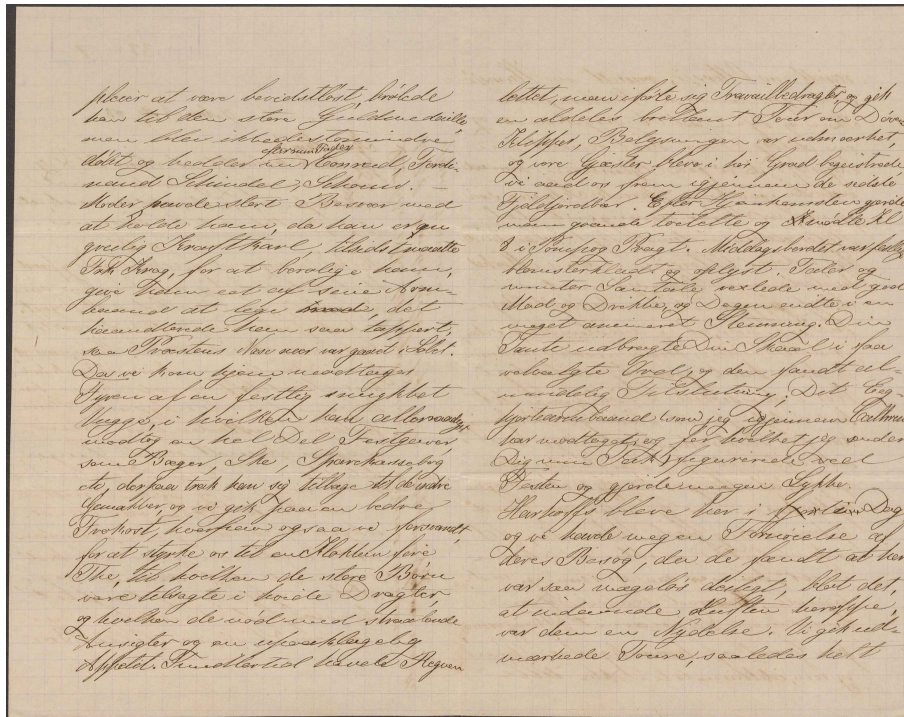 pleier at være bevidstløst, brølede
han til den store Guldmedaille,
men blev ikke distomindre
døbt og hedder nu Konrad, Ferdi-
efter sin Fader
nand Schindel, Schouw. –
Moder havde stort Besvær med
at holde ham, da han er en
gruelig Kraftkarl, tilsidst maatte
Frk Krag, for at berolige ham,
give ham eet af sine Arm-
baand at lege med, det
haandterede ham saa tappert,
saa Præstens Næse nær var gaaet i Løbet.
Da vi kom hjem modtoges
Fyren af en festlig smykket
Vugge, i hvilken han allernaadigst
modtog en hel Del Festgaver,
som Bæger, Ske, Sparekassebog
etc, derpaa trak han sig tilbage til de indre
Gemakker, og vi gik paa en bedre
Frokost, hvorpaa ogsaa vi forsvandt,
for at styrke os til en Klokken fire
The, til hvilken de store Børn
vare tilsagte i hvide Dragter
og hvilken de nød med straalende
Ansigter og en upaaklagelig
Appetit. Imidlertid havde Regnen
lettet, man iførte sig Travailledragter, og gik
en aldeles brillant Tour om Dovre
Kloppe, Belysningen var udmærket,
og vore Gjæster bleve i høi Grad begeistrede,
vi aad os frem igjennem de sidste
Fjeldjordbær. Efter Hjemkomsten gjorde
man grande toilette og samlede Kl
8 i Pomp og Pragt. Middagsbordet var festlig
blomsterklædt og oplyst. Taler og
munter Samtale vexlede med god
Mad og Drikke, og Dagen endte i en
meget animeret Stemning. Din
Tante udbragte Din Skaal i faa
velvalgte Ord, og den fandt al-
mindelig Tilslutning. Dit Eeg-
hjortearmbaand (som jeg igjennem
har modtaget, og for hvilket jeg sender
Dig min Tak) figurerede ved
Festen og gjorde megen Lykke.
bleve her i fjorten Dage
og vi havde megen Fornøielse af
deres Besøg, da de fandt at her
var saa mageløs deiligt, blev det,
at indaande Luften heroppe,
var dem en Nydelse. Vi gik ud-
mærkede Toure, saaledes helt